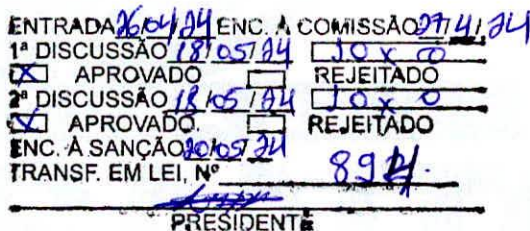 ENTRADA 26/04/24 ENC. À COMISSÃO 27/4/24
1ª DISCUSSÃO 18/05/24 10 x 0
X APROVADO REJEITADO
2ª DISCUSSÃO 18/05/24 10 x 0
X APROVADO. REJEITADO
ENC. À SANÇÃO 20/05/24
TRANSF. EM LEI, Nº 894.
PRESIDENTE